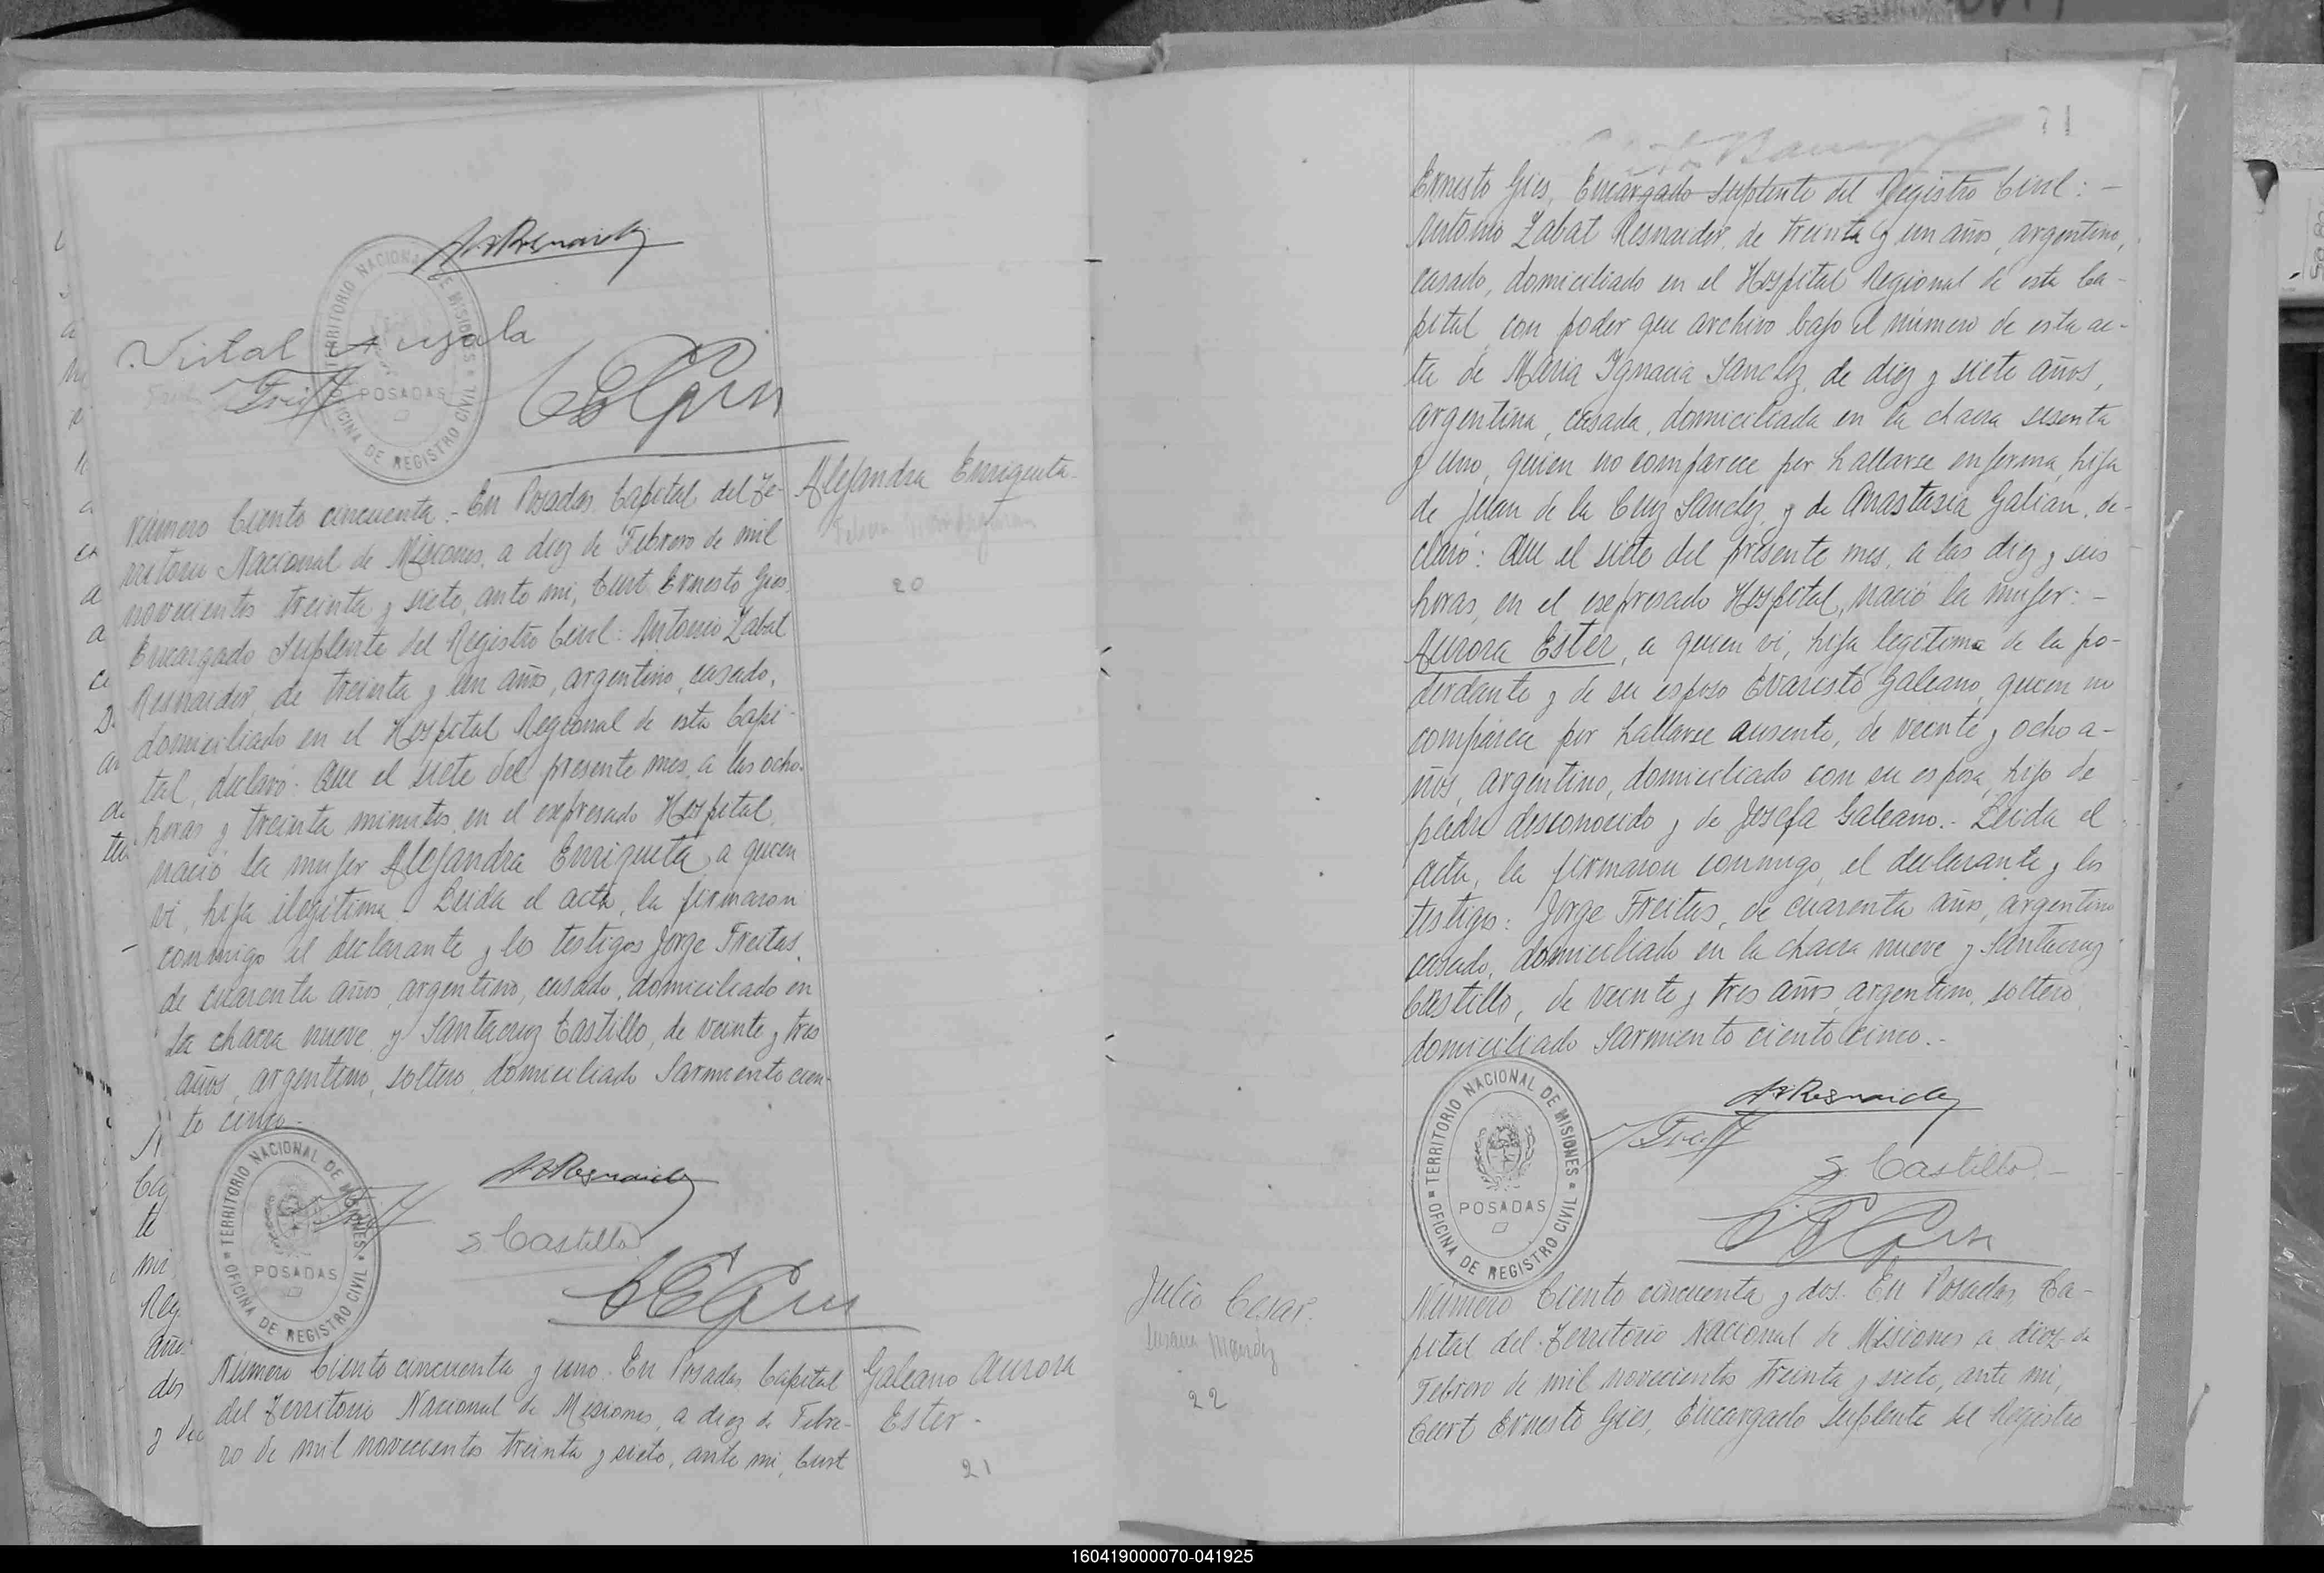 Vidal Ayala
TERRITORIO NACIONAL DE MISIONES
POSADAS
OFICINA DE REGISTRO CIVIL
Número Ciento cincuenta.- En Posadas Capital del Te-
rritorio Nacional de Misiones, a diez de Febrero de mil
novecientos treinta y siete, ante mi, Curt Ernesto Gies,
Encargado Suplente del Registro Civil: Antonio Zabat
Resnaider, de treinta y un años, argentino, casado,
domiciliado en el Hospital Regional de esta Capi-
tal, declaró: Que el siete del presente mes, a las ocho
horas y treinta minutos, en el expresado Hospital,
nació la mujer Alejandra Enriqueta, a quien
vi, hija ilegitima.- Leida el acta, la firmaron
conmigo el declarante y los testigos Jorge Freitas,
de cuarenta años, argentino, casado, domiciliado en
la chacra nueve y Santacruz Castillo, de veinte y tres
años, argentino, soltero, domiciliado Sarmiento cien-
to cinco.-
Alejandra Enriqueta
20
TERRITORIO NACIONAL DE MISIONES
POSADAS
OFICINA DE REGISTRO CIVIL
S Castillo
Número Ciento cincuenta y uno. En Posadas Capital
del Territorio Nacional de Misiones, a diez de Febre-
ro de mil novecientos treinta y siete, ante mi, Curt
Galeano Aurora
Ester.-
21
71
Ernesto Gies, Encargado Suplente del Registro Civil:-
Antonio Zabat Resnaider, de treinta y un años, argentino,
casado, domiciliado en el Hospital Regional de esta Ca-
pital, con poder que archivo bajo el número de esta ac-
ta de Maria Ygnacia Sanchez, de diez y siete años,
argentina, casada, domiciliada en la chacra sesenta
y uno, quien no comparece por hallarse enferma, hija
de Juan de la Cruz Sanchez y de Anastasia Galian, de-
claró: Que el siete del presente mes, a las diez y seis
horas, en el expresado Hospital, nació la mujer:-
Aurora Ester, a quien vi, hija legitima de la po-
derdante y de su esposo Evaristo Galeano, quien no
comparece por hallarse ausente, de veinte y ocho a-
ños, argentino, domiciliado con su esposa, hijo de
padre desconocido y de Josefa Galeano.- Leida el
acta, la firmaron conmigo, el declarante y los
testigos: Jorge Freitas, de cuarenta años, argentino
casado, domiciliado en la chacra nueve y Santacruz
Castillo, de veinte y tres años, argentino, soltero,
domiciliado Sarmiento ciento cinco.-
TERRITORIO NACIONAL DE MISIONES
POSADAS
OFICINA DE REGISTRO CIVIL
S Castillo
Julio Cesar.
22
Número Ciento cincuenta y dos. En Posadas Ca-
pital del Territorio Nacional de Misiones a diez de
Febrero de mil novecientos treinta y siete, ante mi,
Curt Ernesto Gies, Encargado Suplente del Registro
160419000070-041925